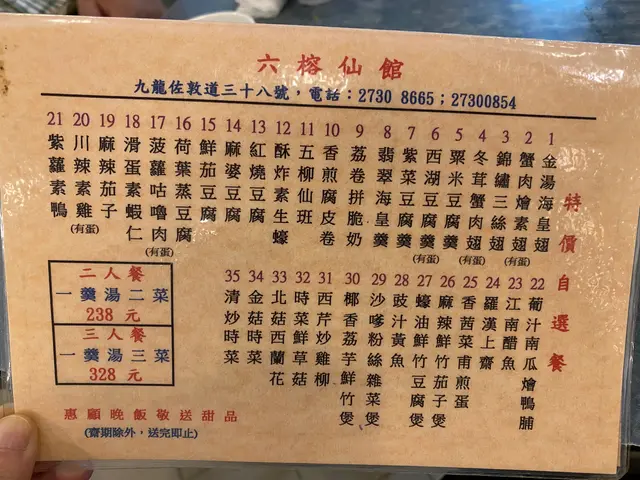 六榕仙館
九龍佐敦道三十八號，電話：2730 8665；27300854
特價自選餐
1 金湯海皇翅
2 蟹肉燴素翅 (有蛋)
3 錦繡三絲羹
4 冬茸蟹肉翅 (有蛋)
5 粟米豆腐羹
6 西湖豆腐羹 (有蛋)
7 紫菜豆腐羹
8 翡翠海皇羹
9 荔卷拼脆奶
10 香煎腐皮卷
11 五柳仙班
12 酥炸素生蠔
13 紅燒豆腐
14 麻婆豆腐
15 鮮茄豆腐
16 荷葉蒸豆腐
17 菠蘿咕嚕肉 (有蛋)
18 滑蛋素蝦仁
19 麻辣茄子
20 川辣素雞 (有蛋)
21 紫蘿素鴨
22 葡汁南瓜燴鴨脯
23 江南醋魚
24 羅漢上齋
25 香茜菜甫煎蛋
26 麻辣鮮竹茄子煲
27 蠔油鮮竹豆腐煲
28 豉汁黃魚
29 沙嗲粉絲雜菜煲
30 椰香荔芋鮮竹煲
31 西芹雞柳
32 時菜鮮草菇
33 北菇西蘭花
34 金菇時菜
35 清炒時菜
二人餐
一羹湯二菜
238 元
三人餐
一羹湯三菜
328 元
惠顧晚飯敬送甜品
(齋期除外，送完即止)